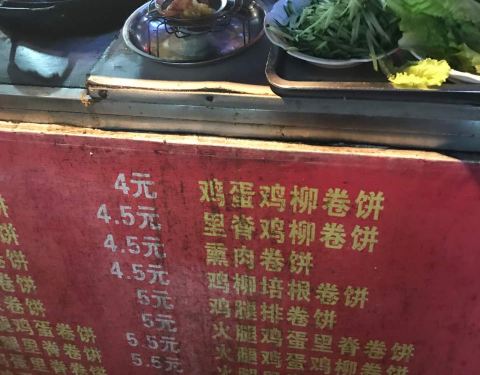 4元 鸡蛋鸡柳卷饼
4.5元 里脊鸡柳卷饼
4.5元 熏肉卷饼
饼 4.5元 鸡柳培根卷饼
卷饼 5元 鸡腿排卷饼
鸡蛋卷饼 5元 火腿鸡蛋里脊卷饼
腿里脊卷饼 5.5元 火腿鸡蛋鸡柳卷饼
里脊卷饼 5.5元 火腿